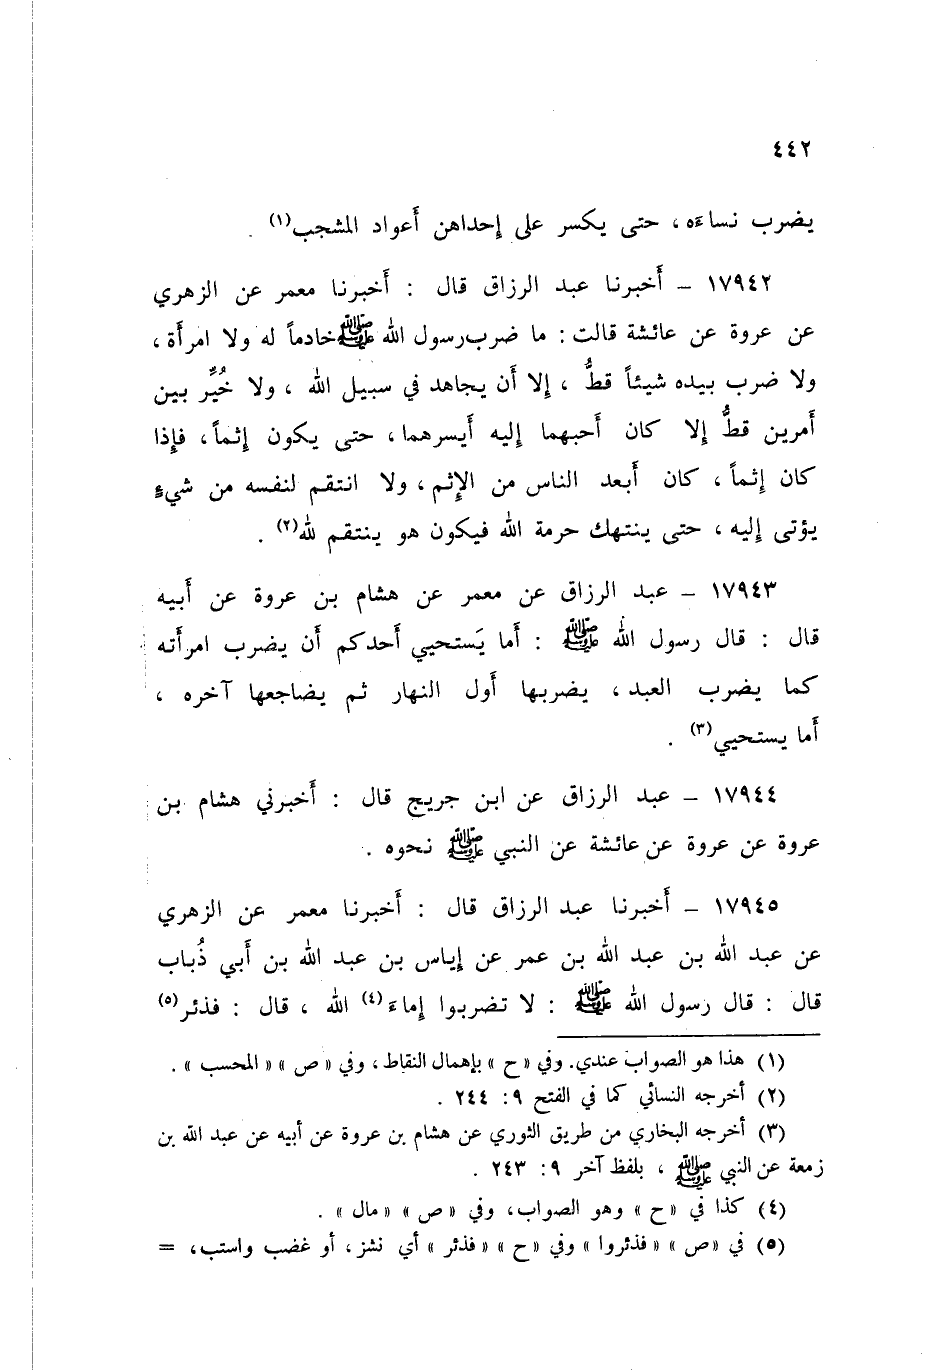 ٤٤٢
يضرب نساءه ، حتى يكسر على إحداهن أعواد المشجب(١) .
١٧٩٤٢ – أخبرنا عبد الرزاق قال : أخبرنا معمر عن الزهري
عن عروة عن عائشة قالت : ما ضرب رسول الله ﷺ خادماً له ولا امرأة ،
ولا ضرب بيده شيئاً قطُّ ، إلا أن يجاهد في سبيل الله ، ولا خُيِّر بين
أمرين قطُّ إلا كان أحبهما إليه أيسرهما ، حتى يكون إثماً ، فإذا
كان إثماً ، كان أبعد الناس من الإثم ، ولا انتقم لنفسه من شيءٍ
يؤتى إليه ، حتى ينتهك حرمة الله فيكون هو ينتقم لله(٢) .
١٧٩٤٣ – عبد الرزاق عن معمر عن هشام بن عروة عن أبيه
قال : قال رسول الله ﷺ : أما يَستحيي أحدكم أن يضرب امرأته
كما يضرب العبد ، يضربها أول النهار ثم يضاجعها آخره ،
أما يستحيي(٣) .
١٧٩٤٤ – عبد الرزاق عن ابن جريج قال : أخبرني هشام بن
عروة عن عروة عن عائشة عن النبي ﷺ نحوه .
١٧٩٤٥ – أخبرنا عبد الرزاق قال : أخبرنا معمر عن الزهري
عن عبد الله بن عبد الله بن عمر عن إياس بن عبد الله بن أبي ذُباب
قال : قال رسول الله ﷺ : لا تضربوا إماءَ(٤) الله ، قال : فذئر(٥)
(١) هذا هو الصواب عندي. وفي «ح» بإهمال النقاط ، وفي «ص» «المحسب» .
(٢) أخرجه النسائي كما في الفتح ٩ : ٢٤٤ .
(٣) أخرجه البخاري من طريق الثوري عن هشام بن عروة عن أبيه عن عبد الله بن
زمعة عن النبي ﷺ ، بلفظ آخر ٩ : ٢٤٣ .
(٤) كذا في «ح» وهو الصواب، وفي «ص» «مال» .
(٥) في «ص» «فذئروا» وفي «ح» «فذئر» أي نشز ، أو غضب واستب، =